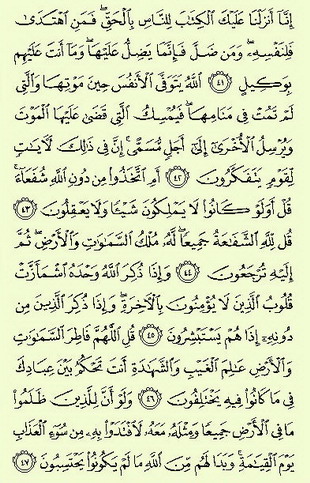 إِنَّآ أَنزَلْنَا عَلَيْكَ ٱلْكِتَٰبَ لِلنَّاسِ بِٱلْحَقِّ ۖ فَمَنِ ٱهْتَدَىٰ
فَلِنَفْسِهِۦ ۖ وَمَن ضَلَّ فَإِنَّمَا يَضِلُّ عَلَيْهَا ۖ وَمَآ أَنتَ عَلَيْهِم
بِوَكِيلٍ ﴿٤١﴾ ٱللَّهُ يَتَوَفَّى ٱلْأَنفُسَ حِينَ مَوْتِهَا وَٱلَّتِى
لَمْ تَمُتْ فِى مَنَامِهَا ۖ فَيُمْسِكُ ٱلَّتِى قَضَىٰ عَلَيْهَا ٱلْمَوْتَ
وَيُرْسِلُ ٱلْأُخْرَىٰٓ إِلَىٰٓ أَجَلٍ مُّسَمًّى ۚ إِنَّ فِى ذَٰلِكَ لَءَايَٰتٍ
لِّقَوْمٍ يَتَفَكَّرُونَ ﴿٤٢﴾ أَمِ ٱتَّخَذُوا۟ مِن دُونِ ٱللَّهِ شُفَعَآءَ ۚ
قُلْ أَوَلَوْ كَانُوا۟ لَا يَمْلِكُونَ شَيْـًٔا وَلَا يَعْقِلُونَ ﴿٤٣﴾
قُل لِّلَّهِ ٱلشَّفَٰعَةُ جَمِيعًا ۖ لَّهُۥ مُلْكُ ٱلسَّمَٰوَٰتِ وَٱلْأَرْضِ ۖ ثُمَّ
إِلَيْهِ تُرْجَعُونَ ﴿٤٤﴾ وَإِذَا ذُكِرَ ٱللَّهُ وَحْدَهُ ٱشْمَأَزَّتْ
قُلُوبُ ٱلَّذِينَ لَا يُؤْمِنُونَ بِٱلْءَاخِرَةِ ۖ وَإِذَا ذُكِرَ ٱلَّذِينَ مِن
دُونِهِۦٓ إِذَا هُمْ يَسْتَبْشِرُونَ ﴿٤٥﴾ قُلِ ٱللَّهُمَّ فَاطِرَ ٱلسَّمَٰوَٰتِ
وَٱلْأَرْضِ عَٰلِمَ ٱلْغَيْبِ وَٱلشَّهَٰدَةِ أَنتَ تَحْكُمُ بَيْنَ عِبَادِكَ
فِى مَا كَانُوا۟ فِيهِ يَخْتَلِفُونَ ﴿٤٦﴾ وَلَوْ أَنَّ لِلَّذِينَ ظَلَمُوا۟
مَا فِى ٱلْأَرْضِ جَمِيعًا وَمِثْلَهُۥ مَعَهُۥ لَٱفْتَدَوْا۟ بِهِۦ مِن سُوٓءِ ٱلْعَذَابِ
يَوْمَ ٱلْقِيَٰمَةِ ۚ وَبَدَا لَهُم مِّنَ ٱللَّهِ مَا لَمْ يَكُونُوا۟ يَحْتَسِبُونَ ﴿٤٧﴾